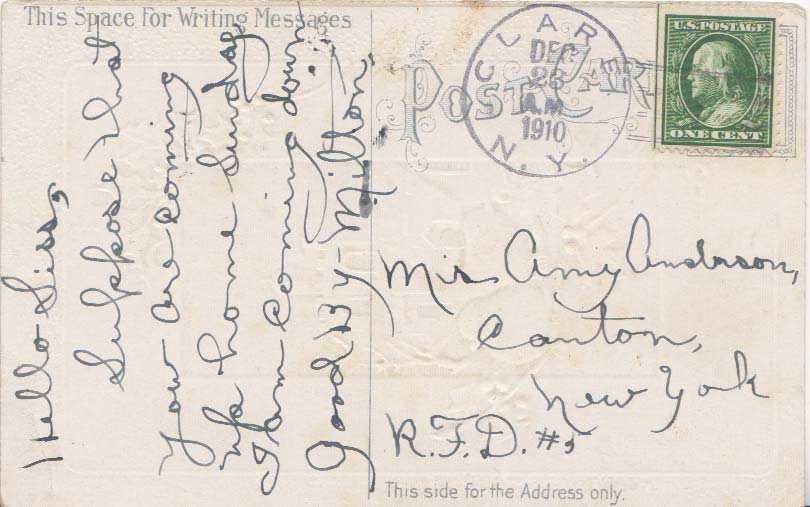 This Space For Writing Messages
Hello Siss,
Suppose that
You are coming
up home Sunday
I am coming down
Good By - Milton.
POST CARD
CLARE
DEC
23
A.M.
1910
N.Y.
U.S. POSTAGE
ONE CENT
Miss Amy Anderson,
Canton,
New York
R.F.D. #5
This side for the Address only.